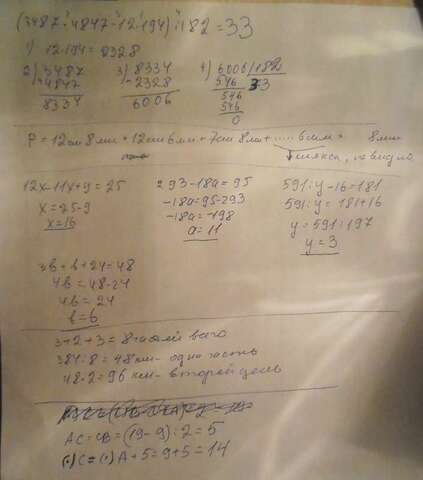 (3487+4847-12·194):182=33
1) 12·194=2328
2) 3487
+4847
8334
3) 8334
-2328
6006
4) 6006/182
546 33
546
546
0
P = 12см 8мм + 12см 6мм + 7см 8мм + 6см 8мм
клякса, не видно
12x-11x+9=25
x=25-9
x=16
293-18a=95
-18a=95-293
-18a=-198
a=11
591:y-16=181
591:y=181+16
y=591:197
y=3
3b+b+24=48
4b=48-24
4b=24
b=6
3+2+3=8 частей всего
384:8=48 км- одна часть
48·2=96 км- второй день
AC=CB=(19-9):2=5
(·)C=(·)A+5=9+5=14